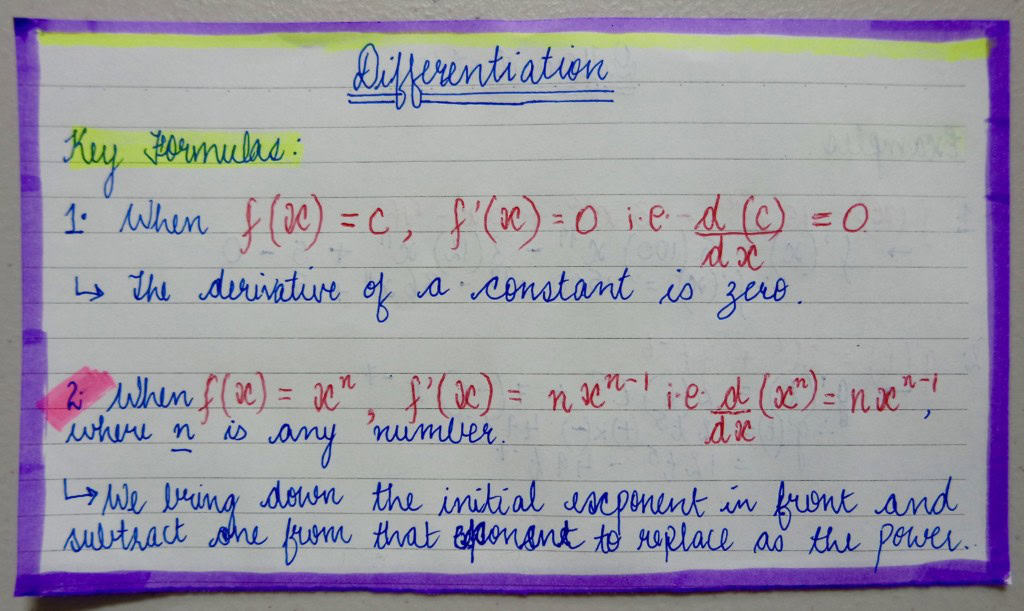 Differentiation
Key Formulas:
1. When f(x) = c, f'(x) = 0 i.e. d/dx (c) = 0
↳ The derivative of a constant is zero.
2. When f(x) = xⁿ, f'(x) = nxⁿ⁻¹ i.e d/dx (xⁿ) = nxⁿ⁻¹,
where n is any number.
↳ We bring down the initial exponent in front and
subtract one from that exponent to replace as the power.